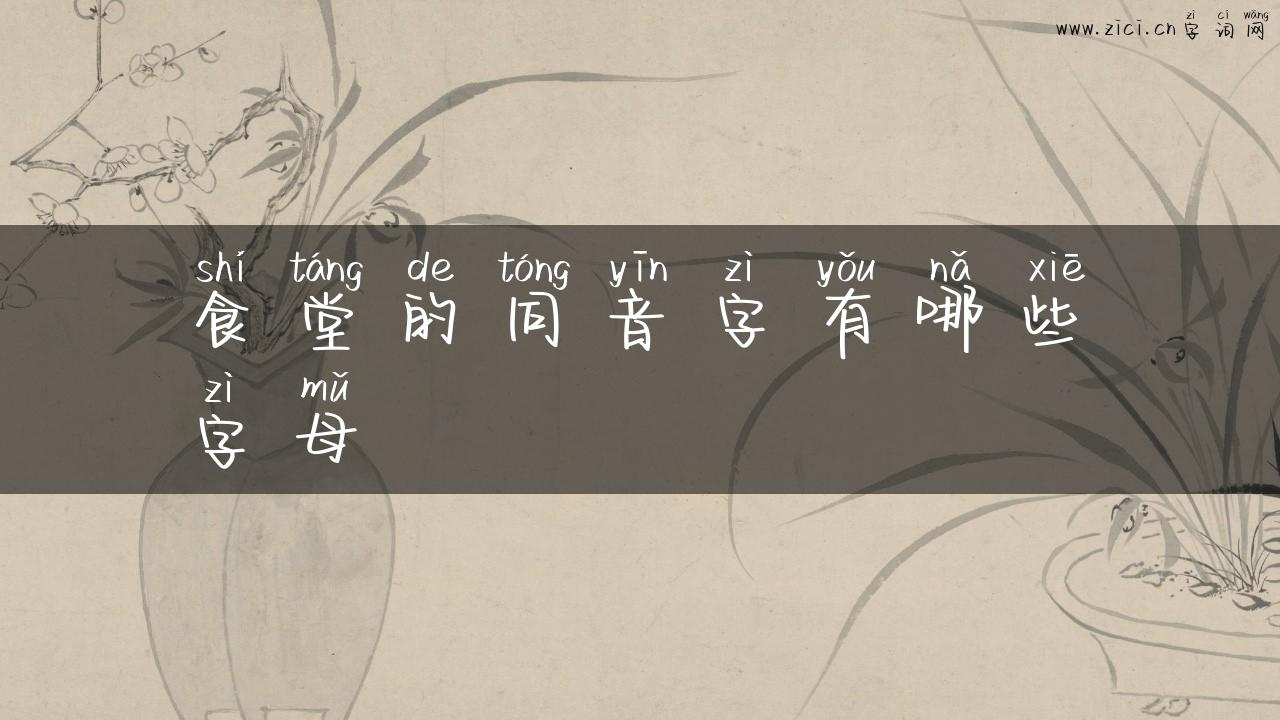 zì cí wǎng
www.zici.cn 字词网
shí táng de tóng yīn zì yǒu nǎ xiē
食堂的同音字有哪些
zì mǔ
字母